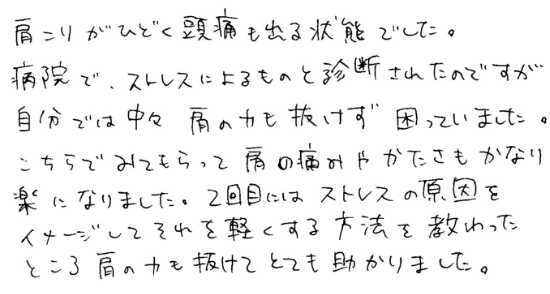 肩こりがひどく頭痛も出る状態でした。
病院で、ストレスによるものと診断されたのですが
自分では中々 肩の力も抜けず 困っていました。
こちらでみてもらって肩の痛みやかたさもかなり
楽になりました。2回目にはストレスの原因を
イメージしてそれを軽くする方法を教わった
ところ肩の力も抜けてとても助かりました。